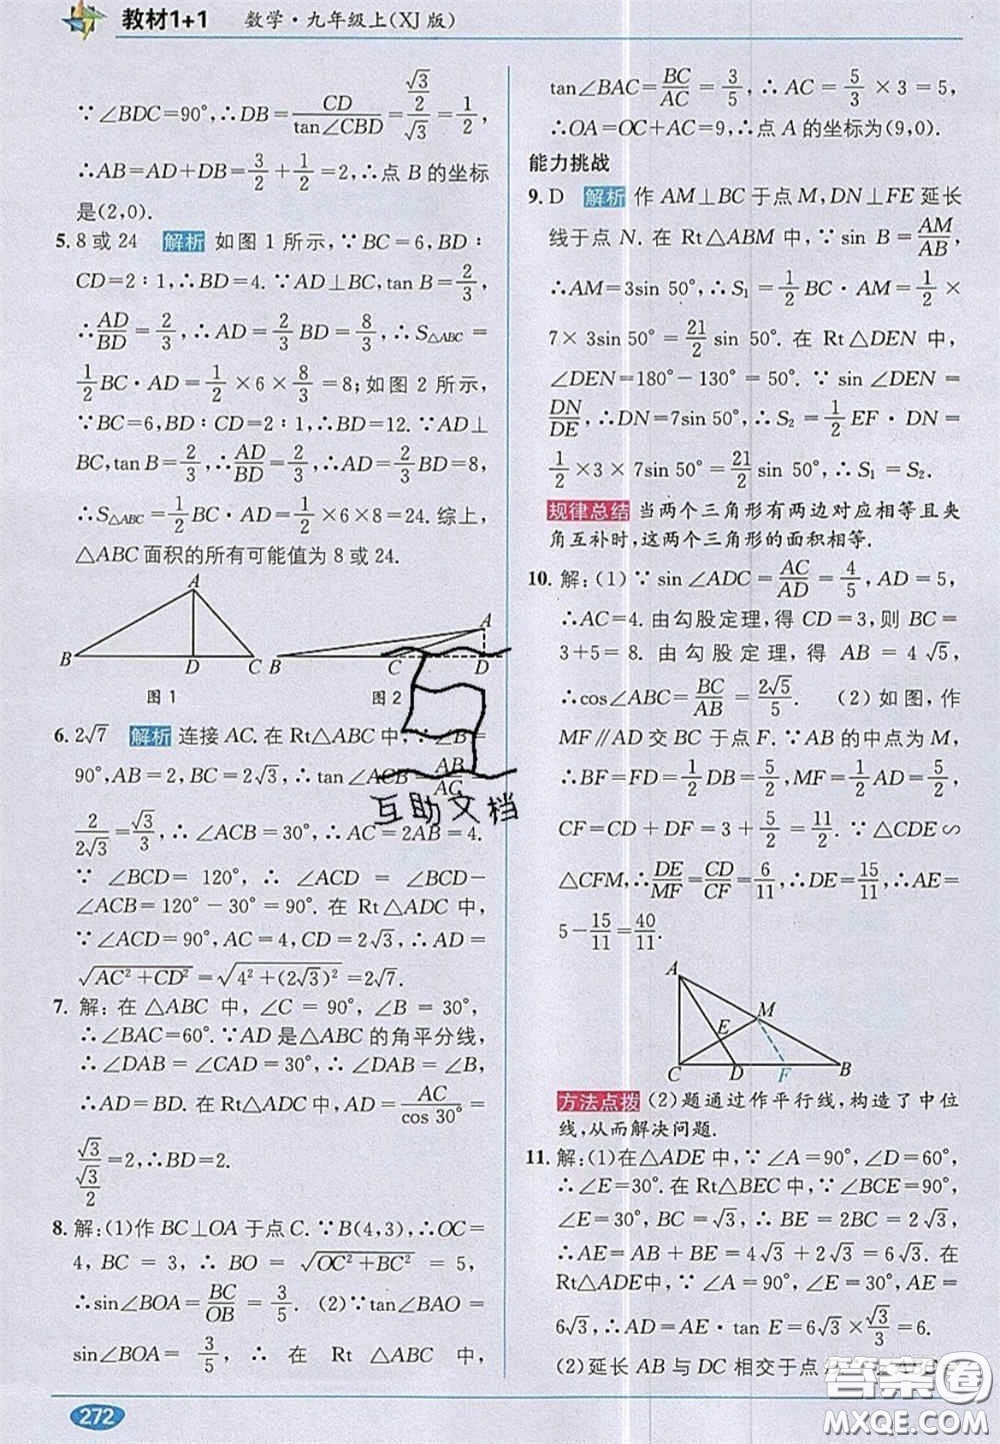 教材1+1 数学·九年级上(XJ版)
∵∠BDC=90°,∴DB=CD/tan∠CBD=(√3/2)/√3=1/2,
∴AB=AD+DB=3/2+1/2=2,∴点 B 的坐标
是(2,0).
5. 8或24 解析 如图1所示,∵BC=6,BD∶
CD=2∶1,∴BD=4.∵AD⊥BC,tan B=2/3,
∴AD/BD=2/3,∴AD=2/3BD=8/3,∴S△ABC=
1/2BC·AD=1/2×6×8/3=8;如图2所示,
∵BC=6,BD∶CD=2∶1,∴BD=12.∵AD⊥
BC,tan B=2/3,∴AD/BD=2/3,∴AD=2/3BD=8,
∴S△ABC=1/2BC·AD=1/2×6×8=24.综上,
△ABC面积的所有可能值为8或24.
A
B D C
图1
A
B C D
图2
6. 2√7 解析 连接AC.在Rt△ABC中,∵∠B=
90°,AB=2,BC=2√3,∴tan∠ACB=AB/AC=
2/2√3=√3/3,∴∠ACB=30°,∴AC=2AB=4.
∵∠BCD=120°,∴∠ACD=∠BCD-
∠ACB=120°-30°=90°.在Rt△ADC中,
∵∠ACD=90°,AC=4,CD=2√3,∴AD=
√(AC²+CD²)=√(4²+(2√3)²)=2√7.
7. 解:在△ABC中,∠C=90°,∠B=30°,
∴∠BAC=60°.∵AD是△ABC的角平分线,
∴∠DAB=∠CAD=30°,∴∠DAB=∠B,
∴AD=BD.在Rt△ACD中,AD=AC/cos 30°=
√3/(√3/2)=2,∴BD=2.
8. 解:(1)作BC⊥OA于点C.∵B(4,3),∴OC=
4,BC=3,∴BO=√(OC²+BC²)=5,
∴sin∠BOA=BC/OB=3/5.(2)∵tan∠BAO=
sin∠BOA=3/5,∴在Rt△ABC中,
272
tan∠BAC=BC/AC=3/5,∴AC=5/3×3=5,
∴OA=OC+AC=9,∴点A的坐标为(9,0).
能力挑战
9. D 解析 作AM⊥BC于点M,DN⊥FE延长
线于点N.在Rt△ABM中,∵sin B=AM/AB,
∴AM=3sin 50°,∴S₁=1/2BC·AM=1/2×
7×3sin 50°=21/2sin 50°.在Rt△DEN中,
∠DEN=180°-130°=50°.∵sin∠DEN=
DN/DE,∴DN=7sin 50°,∴S₂=1/2EF·DN=
1/2×3×7sin 50°=21/2sin 50°,∴S₁=S₂.
规律总结 当两个三角形有两边对应相等且夹
角互补时,这两个三角形的面积相等.
10. 解:(1)∵sin∠ADC=AC/AD=4/5,AD=5,
∴AC=4.由勾股定理,得CD=3,则BC=
3+5=8.由勾股定理,得AB=4√5,
∴cos∠ABC=BC/AB=2√5/5.(2)如图,作
MF∥AD交BC于点F.∵AB的中点为M,
∴BF=FD=1/2DB=5/2,MF=1/2AD=5/2,
CF=CD+DF=3+5/2=11/2.∵△CDE∽
△CFM,∴DE/MF=CD/CF=6/11,∴DE=15/11,∴AE=
5-15/11=40/11.
A
E M
C D F B
方法点拨 (2)题通过作平行线,构造了中位
线,从而解决问题.
11. 解:(1)在△ADE中,∵∠A=90°,∠D=60°,
∴∠E=30°.在Rt△BEC中,∵∠BCE=90°,
∠E=30°,BC=2√3,∴BE=2BC=4√3,
∴AE=AB+BE=2√3+4√3=6√3.在
Rt△ADE中,∵∠A=90°,∠E=30°,AE=
6√3,∴AD=AE·tan E=6√3×√3/3=6.
(2)延长AB与DC相交于点
互助文档
答案圈
MXQE.COM